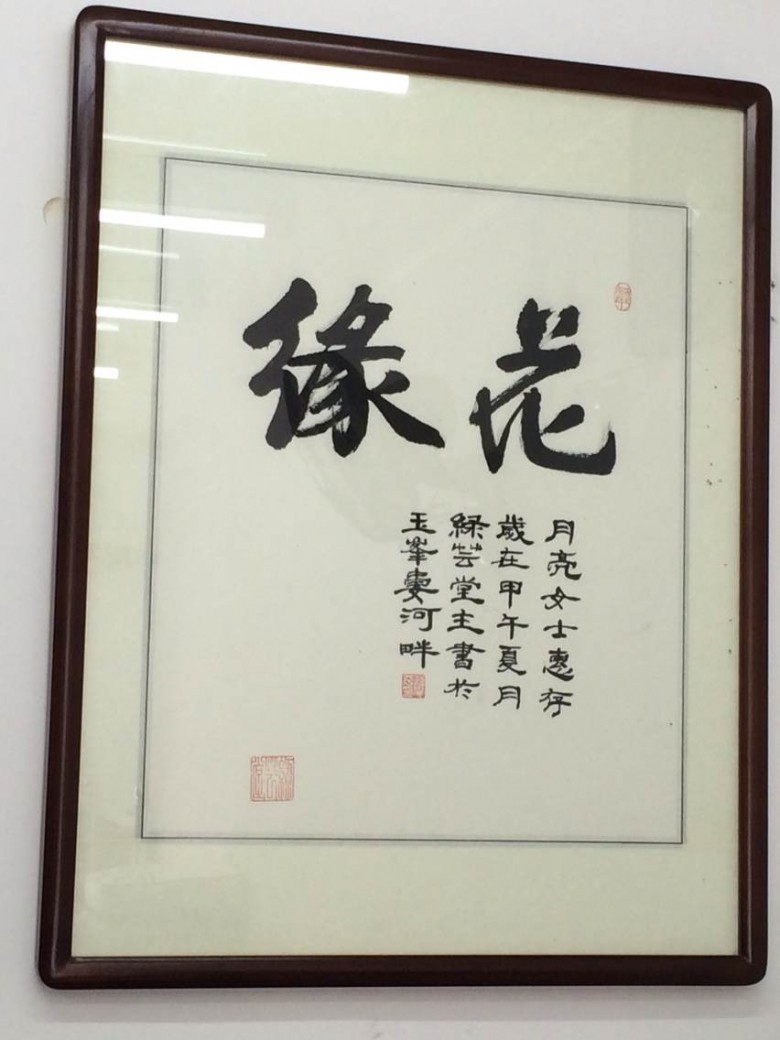 花緣
月亮女士惠存
歲在甲午夏月
綠芸堂主書於
玉峯婁河畔